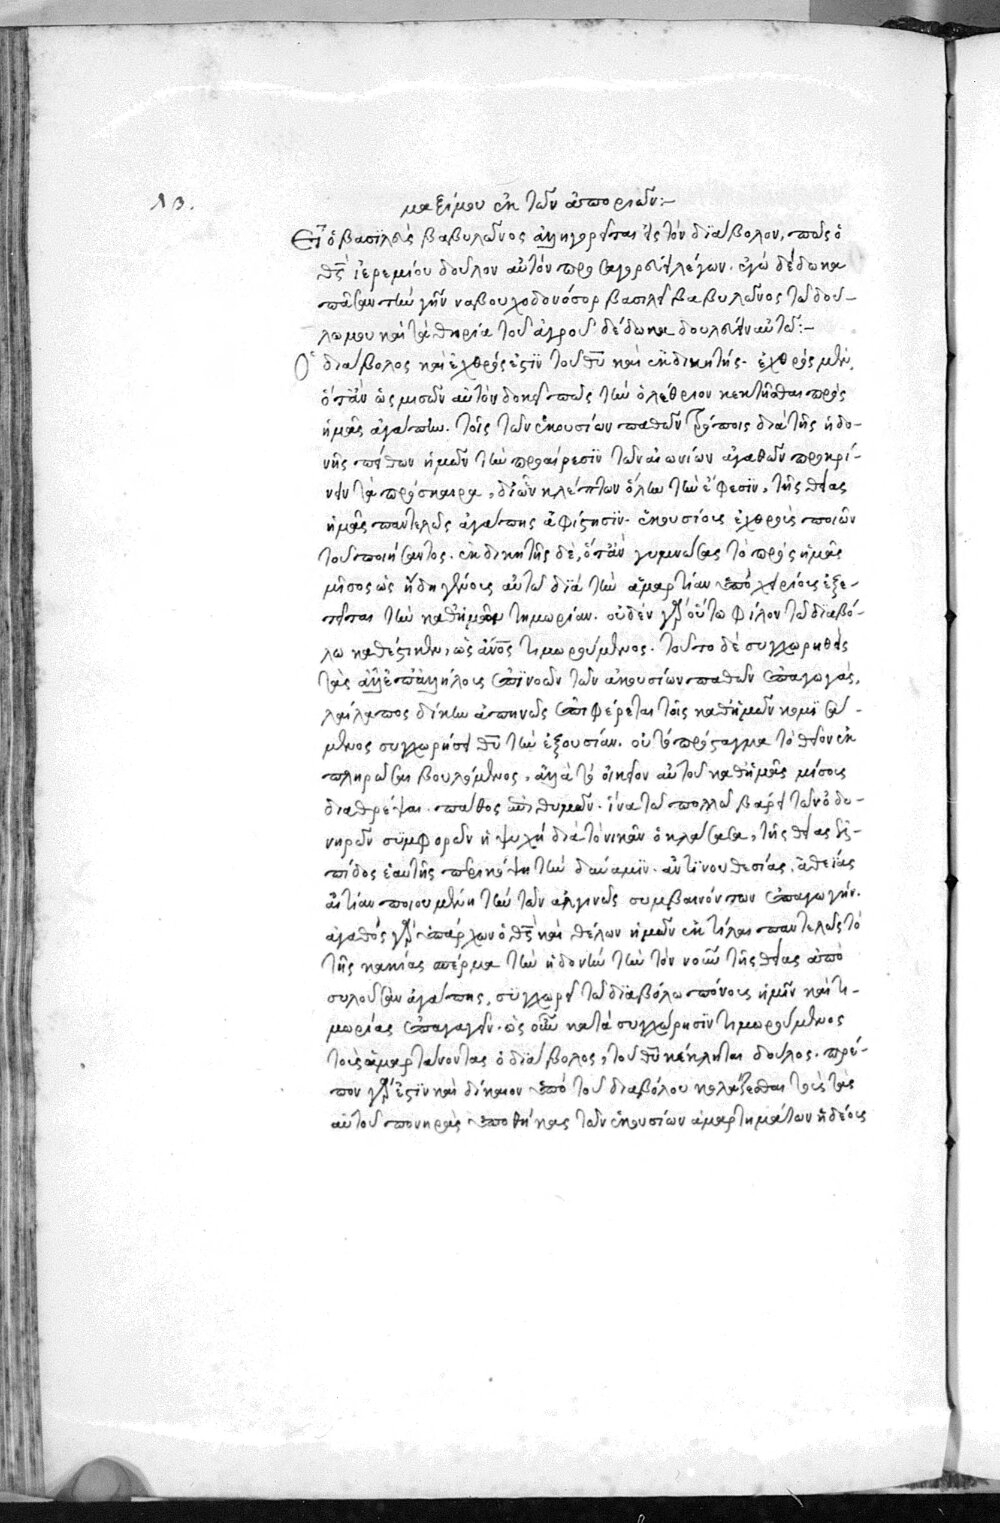 13.
μαξίμου ἐκ τῶν ἀποριῶν:–
Εἰ ὁ βασϊλεὺς βαβυλῶνος ἀλληγορεῖται εἰς τὸν διάβολον, πῶς ὁ
θς ἱερεμίου δοῦλον αὐτὸν προσαγορεύει λέγων. ἐγὼ δέδωκα
πᾶσαν τὴν γῆν ναβουχοδονόσορ βασιλεῖ βαβυλῶνος τῶ δού-
λω μου καὶ τὰ θηρία τοῦ ἀγροῦ δέδωκα δουλεύειν αὐτῶ:–
Ὁ διάβολος καὶ ἐχθρός ἐστϊν τοῦ θυ καὶ ἐκδικητής. ἐχθρὸς μὲν,
ὅταν ὡς μισῶν αὐτὸν δοκεῖ πως τὴν ὀλέθριον κεκτῆσθαι πρὸς
ἡμᾶς ἀγάπην. τοῖς τῶν ἑκουσίων παθῶν τρόποις διὰ τῆς ἡδο-
νῆς πείθων ἡμῶν τὴν προαίρεσϊν τῶν αἰωνίων ἀγαθῶν προκρί-
νειν τὰ πρόσκαιρα, δι ὧν κλέπτων ὅλην τὴν ἔφεσϊν, τῆς θείας
ἡμᾶς παντελῶς ἀγάπης ἀφίστησϊν. ἑκουσίους ἐχθροὺς ποιῶν
τοῦ ποιήσαντος. ἐκδικητὴς δὲ, ὅταν γυμνώσας τὸ πρὸς ἡμᾶς
μῖσος ὡς ἤδη γενόοις αὐτῶ διὰ τὴν ἁμαρτίαν ὑποχειρίοις ἐξε-
τεῖται τὴν καθ ἡμῶν τιμωρίαν. οὐδὲν γὰρ οὕτω φίλον τῶ διαβό-
λω καθέστηκεν, ὡς ἄνος τιμωρούμενος. τοῦτο δὲ συγχωρηθεὶς
τὰς ἀλλεπαλλήλους ἐπϊνοῶν τῶν ἀκουσίων παθῶν ἐπαγωγάς,
λαίλαπος δίκην ἀπηνῶς ἐπιφέρεται τοῖς καθ ἡμῶν κομϊσά-
μενος συγχωρήσει θυ τὴν ἐξουσίαν. οὐ τὸ πρόσταγμα τὸ θεῖον ἐκ
πληρῶσαι βουλόμενος, ἀλλὰ τὸ οἰκεῖον αὐτοῦ καθ ἡμᾶς μίσους
διαθρέψαι πάθος ἐπιθυμῶν. ἵνα τῶ πολλῶ βάρει τῶν ὀδυ-
νηρῶν σϋμφορῶν ἡ ψυχὴ διὰ τόνικὸν ὀκλάσασα, τῆς θείας ἐλ-
πίδος ἑαυτῆς περικόψη τὴν δύναμϊν. ἀντϊ νουθεσίας, ἀθεΐας
αἰτίαν ποιουμένη τὴν τῶν ἀλγινῶς συμβαινόντων ἐπαγωγήν.
ἀγαθὸς γὰρ ὑπάρχων ὁ θς καὶ θέλων ἡμῶν ἐκτίλαι παντελῶς τὸ
τῆς κακίας σπέρμα τὴν ἡδονὴν τὴν τὸν νοῦν τῆς θείας ἀπο
συλοῦσαν ἀγάπης, σϋγχωρεῖ τῶ διαβόλω πόνους ἡμῖν καὶ τι-
μωρίας ἐπαγαγεῖν. ὡς οὖν κατὰ συγχώρησϊν τιμωρούμενος
τοὺς ἁμαρτάνοντας ὁ διάβολος, τοῦ θυ κέκληται δοῦλος. πρέ-
πον γὰρ ἐστϊν καὶ δίκαιον ὑπὸ τοῦ διαβόλου κολάζεσθαι τοὺς τὰς
αὐτοῦ πονηρὰς ὑποθήκας τῶν ἑκουσίων ἁμαρτημάτων ἡδέως